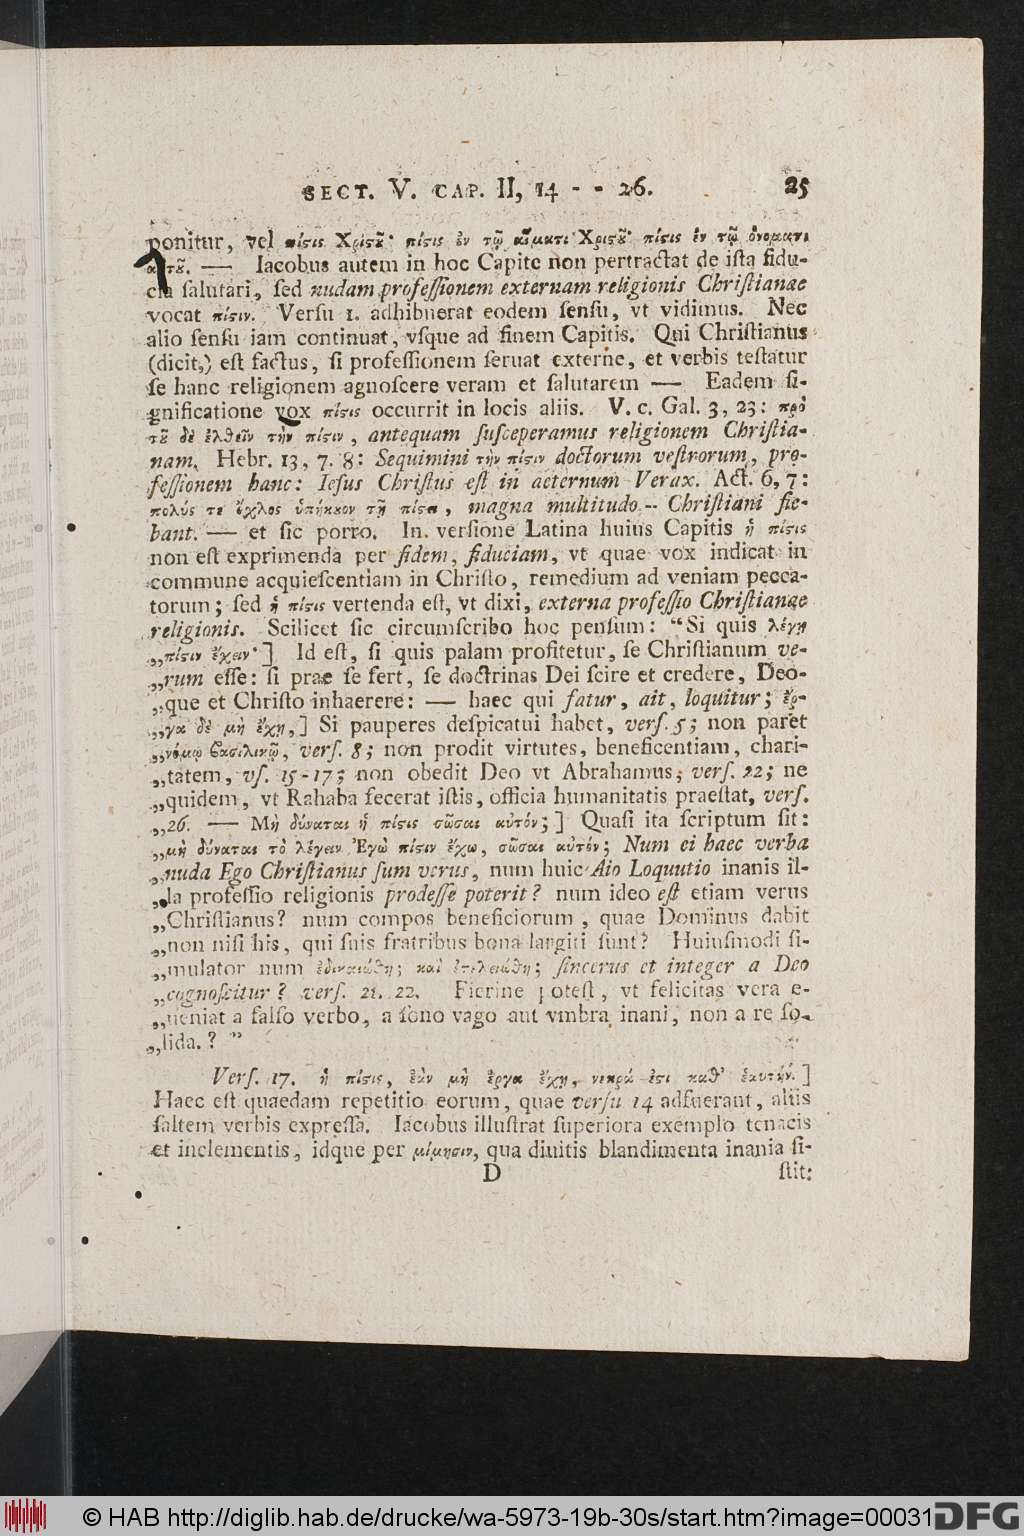 SECT. V. CAP. II, 14 - - 26. 25
ponitur, vel πίϛις Χριϛȣ̃· πίϛις ἐν τῷ αἵματι Χριϛȣ̃· πίϛις ἐν τῷ ὀνοματι
αυτȣ̃. — Iacobus autem in hoc Capite non pertractat de iſta fidu-
cia ſalutari, ſed nudam profeſſionem externam religionis Chriſtianae
vocat πίϛιν. Verſu 1. adhibuerat eodem ſenſu, vt vidimus. Nec
alio ſenſu iam continuat, vſque ad finem Capitis. Qui Chriſtianus
(dicit,) eſt factus, ſi profeſſionem ſeruat externe, et verbis teſtatur
ſe hanc religionem agnoſcere veram et ſalutarem — Eadem ſi-
gnificatione vox πίϛις occurrit in locis aliis. V. c. Gal. 3, 23: πρὸ
τȣ̃ δὲ ἐλθεῖν τὴν πίϛιν, antequam ſuſceperamus religionem Chriſtia-
nam. Hebr. 13, 7. 8: Sequimini τὴν πίϛιν doctorum veſtrorum, pro-
feſſionem hanc: Ieſus Chriſtus eſt in aeternum Verax. Act. 6, 7:
πολύς τε ὄχλος ὑπήκȣον τῇ πίϛει, magna multitudo -- Chriſtiani fie-
bant. — et ſic porro. In verſione Latina huius Capitis ἡ πίϛις
non eſt exprimenda per fidem, fiduciam, vt quae vox indicat in
commune acquieſcentiam in Chriſto, remedium ad veniam pecca-
torum; ſed ἡ πίϛις vertenda eſt, vt dixi, externa profeſſio Chriſtianae
religionis. Scilicet ſic circumſcribo hoc penſum: “Si quis λέγῃ
„πίϛιν ἔχειν·] Id eſt, ſi quis palam profitetur, ſe Chriſtianum ve-
„rum eſſe: ſi prae ſe fert, ſe doctrinas Dei ſcire et credere, Deo-
„que et Chriſto inhaerere: — haec qui fatur, ait, loquitur; ἔρ-
„γα δὲ μὴ ἔχῃ,] Si pauperes deſpicatui habet, verſ. 5; non paret
„νόμῳ βασιλικῷ, verſ. 8; non prodit virtutes, beneficentiam, chari-
„tatem, vſ. 15-17; non obedit Deo vt Abrahamus, verſ. 22; ne
„quidem, vt Rahaba fecerat iſtis, officia humanitatis praeſtat, verſ.
„26. — Μὴ δύναται ἡ πίϛις σῶσαι αὐτόν;] Quaſi ita ſcriptum ſit:
„μὴ δύναται τὸ λέγειν Ἐγὼ πίϛιν ἔχω, σῶσαι αὐτόν; Num ei haec verba
„nuda Ego Chriſtianus ſum verus, num huic Aio Loquutio inanis il-
„la profeſſio religionis prodeſſe poterit? num ideo eſt etiam verus
„Chriſtianus? num compos beneficiorum, quae Dominus dabit
„non niſi his, qui ſuis fratribus bona largiti ſunt? Huiusmodi ſi-
„mulator num ἐδικαιώθη; καὶ ἐτελειώθη; ſincerus et integer a Deo
„cognoſcitur? verſ. 21. 22. Fierine poteſt, vt felicitas vera e-
„ueniat a falſo verbo, a ſono vago aut vmbra inani, non a re ſo-
„lida.? ”
Verſ. 17. ἡ πίϛις, ἐὰν μὴ ἔργα ἔχῃ, νεκρά ἐϛι καθ’ ἑαυτήν.]
Haec eſt quaedam repetitio eorum, quae verſu 14 adfuerant, aliis
ſaltem verbis expreſſa. Iacobus illuſtrat ſuperiora exemplo tenacis
et inclementis, idque per μίμησιν, qua diuitis blandimenta inania ſi-
D ſtit:
© HAB http://diglib.hab.de/drucke/wa-5973-19b-30s/start.htm?image=00031
DFG